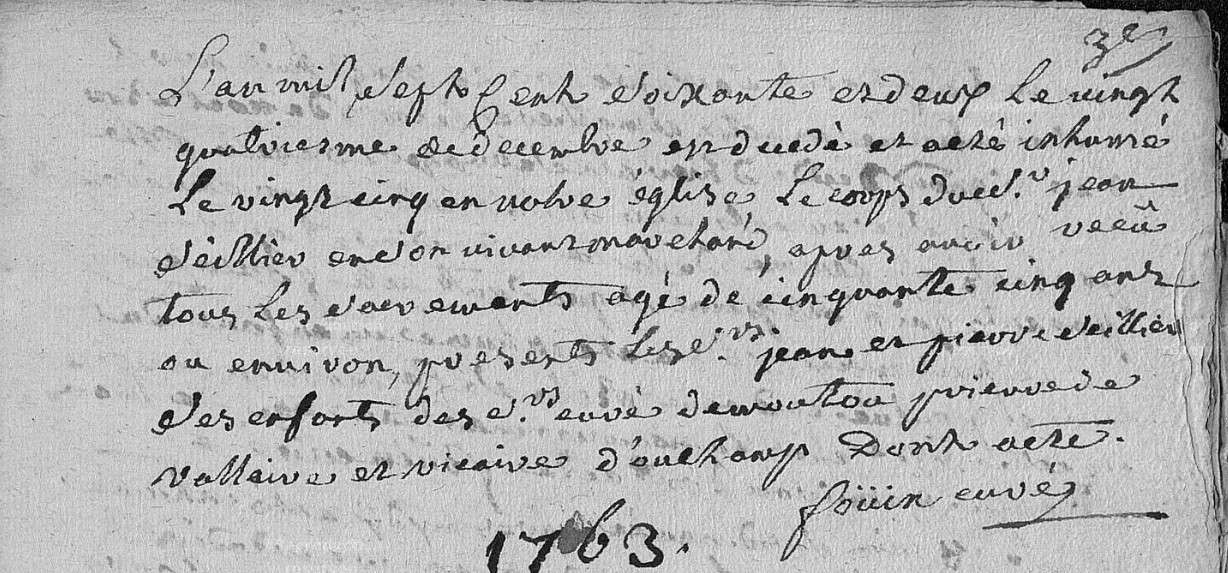 3e
L'an mil sept cent soixante et deux le vingt
quatriesme de decembre est decedé et aeté inhumé
le vingt cinq en notre église le corps du s.r jean
seillier en son vivant marchand, apres avoir receû
tous les sacrements agé de cinquante cinq ans
ou environ, presents les s.rs jean et pierre seillier
ses enfants des s.rs curé de mouton prieur de
vallaire et vicaire d'ouchamp Dont acte.
foüin curé
1763.